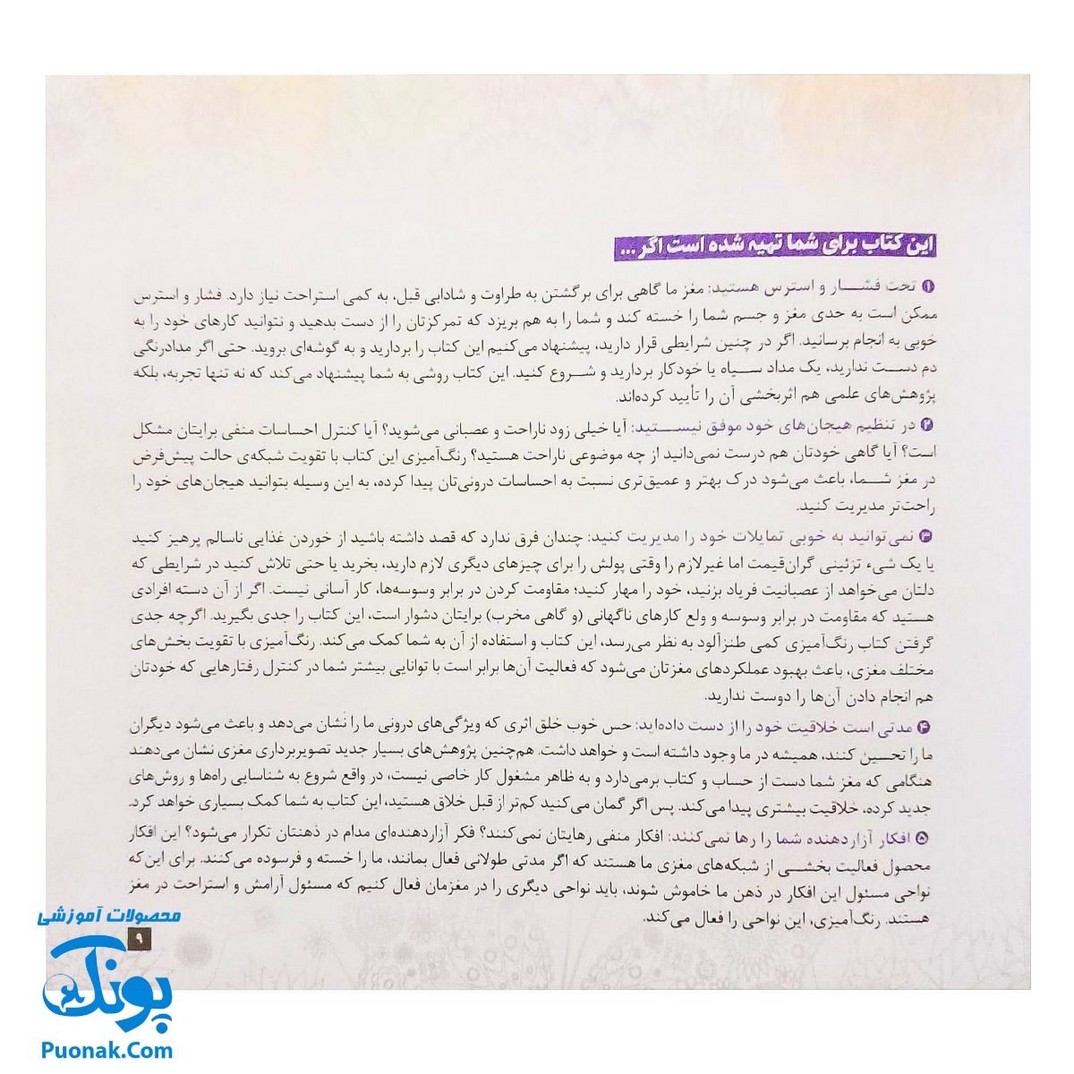 این کتاب برای شما تهیه شده است اگر ...
۱ تحت فشـــار و استرس هستید: مغز ما گاهی برای برگشتن به طراوت و شادابی قبل، به کمی استراحت نیاز دارد. فشار و استرس
ممکن است به حدی مغز و جسم شما را خسته کند و شما را به هم بریزد که تمرکزتان را از دست بدهید و نتوانید کارهای خود را به
خوبی به انجام برسانید. اگر در چنین شرایطی قرار دارید، پیشنهاد می‌کنیم این کتاب را بردارید و به گوشه‌ای بروید. حتی اگر مدادرنگی
دم دســت ندارید، یک مداد ســیاه یا خودکار بردارید و شــروع کنید. این کتاب روشی به شما پیشنهاد می‌کند که نه تنها تجربه، بلکه
پژوهش‌های علمی هم اثربخشی آن را تأیید کرده‌اند.
۲ در تنظیم هیجان‌های خود موفق نیســـتید: آیا خیلی زود ناراحت و عصبانی می‌شوید؟ آیا کنترل احساسات منفی برایتان مشکل
است؟ آیا گاهی خودتان هم درست نمی‌دانید از چه موضوعی ناراحت هستید؟ رنگ‌آمیزی این کتاب با تقویت شبکه‌ی حالت پیش‌فرض
در مغز شــما، باعث می‌شود درک بهتر و عمیق‌تری نسبت به احساسات درونی‌تان پیدا کرده، به این وسیله بتوانید هیجان‌های خود را
راحت‌تر مدیریت کنید.
۳ نمی‌توانید به خوبی تمایلات خود را مدیریت کنید: چندان فرق ندارد که قصد داشته باشید از خوردن غذایی ناسالم پرهیز کنید
یا یک شیء تزئینی گران‌قیمت اما غیرلازم را وقتی پولش را برای چیزهای دیگری لازم دارید، بخرید یا حتی تلاش کنید در شرایطی که
دلتان می‌خواهد از عصبانیت فریاد بزنید، خود را مهار کنید؛ مقاومت کردن در برابر وسوسه‌ها، کار آسانی نیست. اگر از آن دسته افرادی
هســتید که مقاومت در برابر وسوسه و ولع کارهای ناگهانی (و گاهی مخرب) برایتان دشوار است، این کتاب را جدی بگیرید. اگرچه جدی
گرفتن کتاب رنگ‌آمیزی کمی طنزآلود به نظر می‌رسد، این کتاب و استفاده از آن به شما کمک می‌کند. رنگ‌آمیزی با تقویت بخش‌های
مختلف مغزی، باعث بهبود عملکردهای مغزتان می‌شود که فعالیت آن‌ها برابر است با توانایی بیشتر شما در کنترل رفتارهایی که خودتان
هم انجام دادن آن‌ها را دوست ندارید.
۴ مدتی است خلاقیت خود را از دست داده‌اید: حس خوب خلق اثری که ویژگی‌های درونی ما را نشان می‌دهد و باعث می‌شود دیگران
ما را تحسین کنند، همیشه در ما وجود داشته است و خواهد داشت. هم‌چنین پژوهش‌های بسیار جدید تصویربرداری مغزی نشان می‌دهند
هنگامی که مغز شما دست از حساب و کتاب برمی‌دارد و به ظاهر مشغول کار خاصی نیست، در واقع شروع به شناسایی راه‌ها و روش‌های
جدید کرده، خلاقیت بیشتری پیدا می‌کند. پس اگر گمان می‌کنید کم‌تر از قبل خلاق هستید، این کتاب به شما کمک بسیاری خواهد کرد.
۵ افکار آزاردهنده شما را رها نمی‌کنند: افکار منفی رهایتان نمی‌کنند؟ فکر آزاردهنده‌ای مدام در ذهنتان تکرار می‌شود؟ این افکار
محصول فعالیت بخشــی از شبکه‌های مغزی ما هستند که اگر مدتی طولانی فعال بمانند، ما را خسته و فرسوده می‌کنند. برای این‌که
نواحی مسئول این افکار در ذهن ما خاموش شوند، باید نواحی دیگری را در مغزمان فعال کنیم که مسئول آرامش و استراحت در مغز
هستند. رنگ‌آمیزی، این نواحی را فعال می‌کند.
۹
محصولات آموزشی
پونک
Puonak.Com